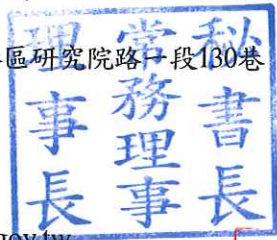 區研究院路一段130巷
秘書長
常務理事
理事長
gov.tw